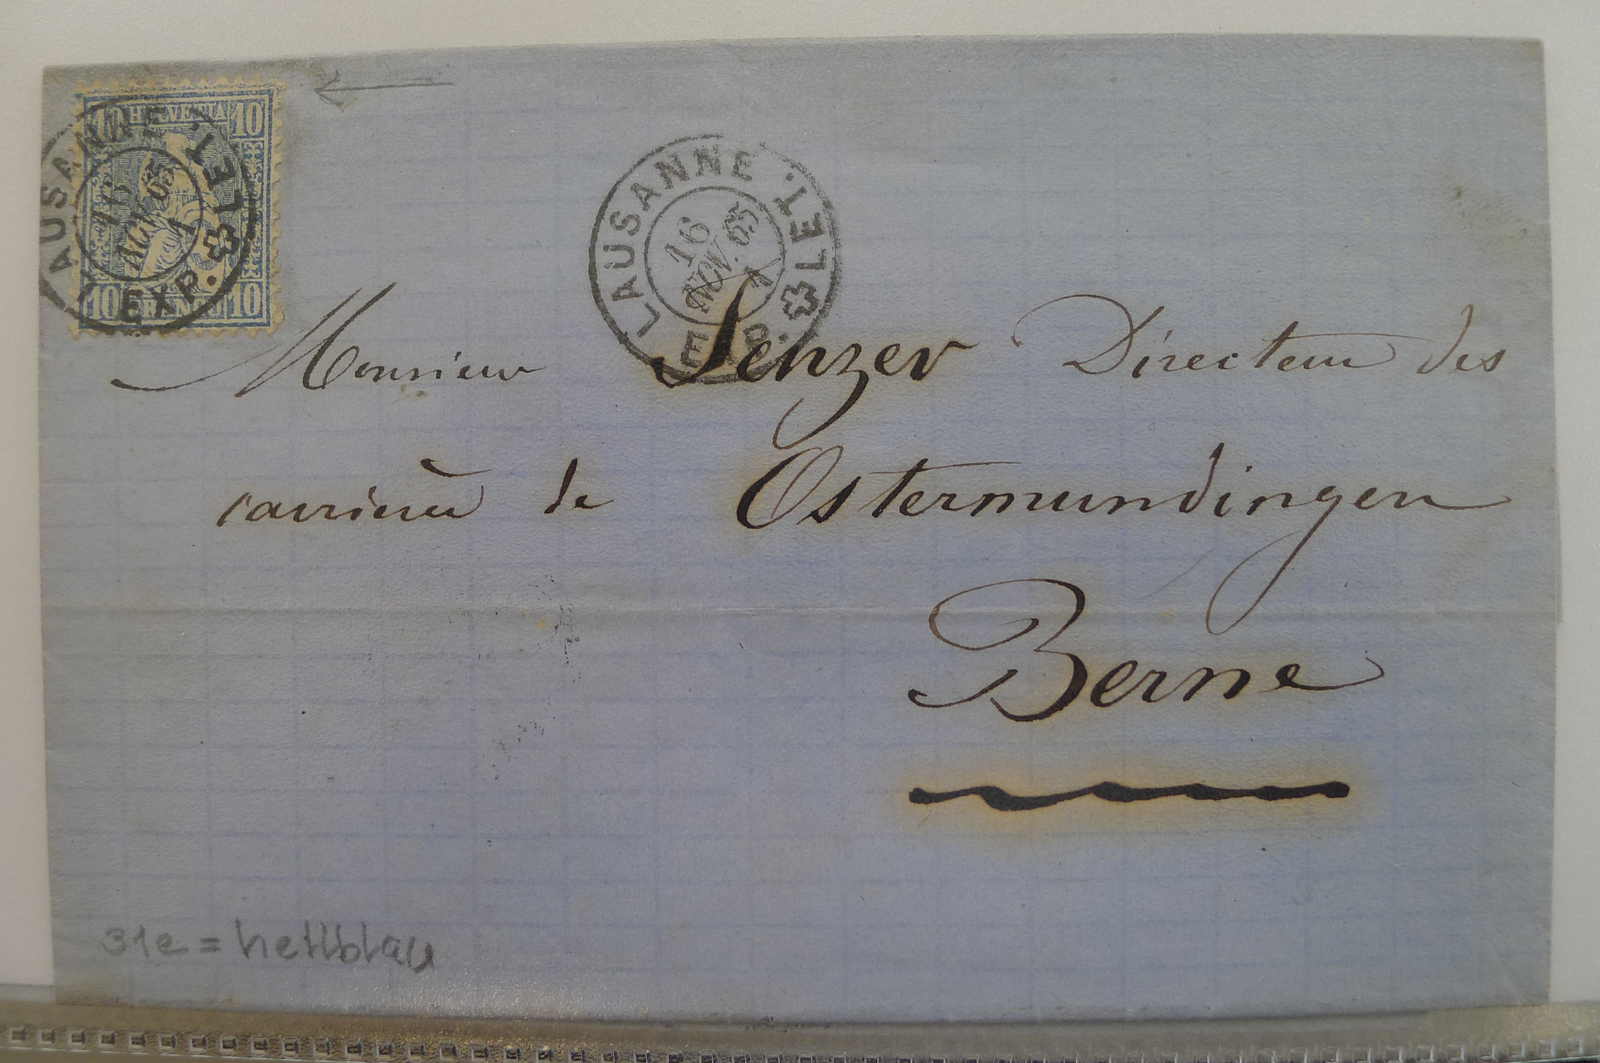 10 HELVETIA 10
10 FRANCO 10
LAUSANNE EXP. LET.
16 NOV. 65
1
LAUSANNE EXP. LET.
16
NOV. 65
1
Monsieur Senzer Directeur des
carrières de Ostermundingen
Berne
31e = hellblau